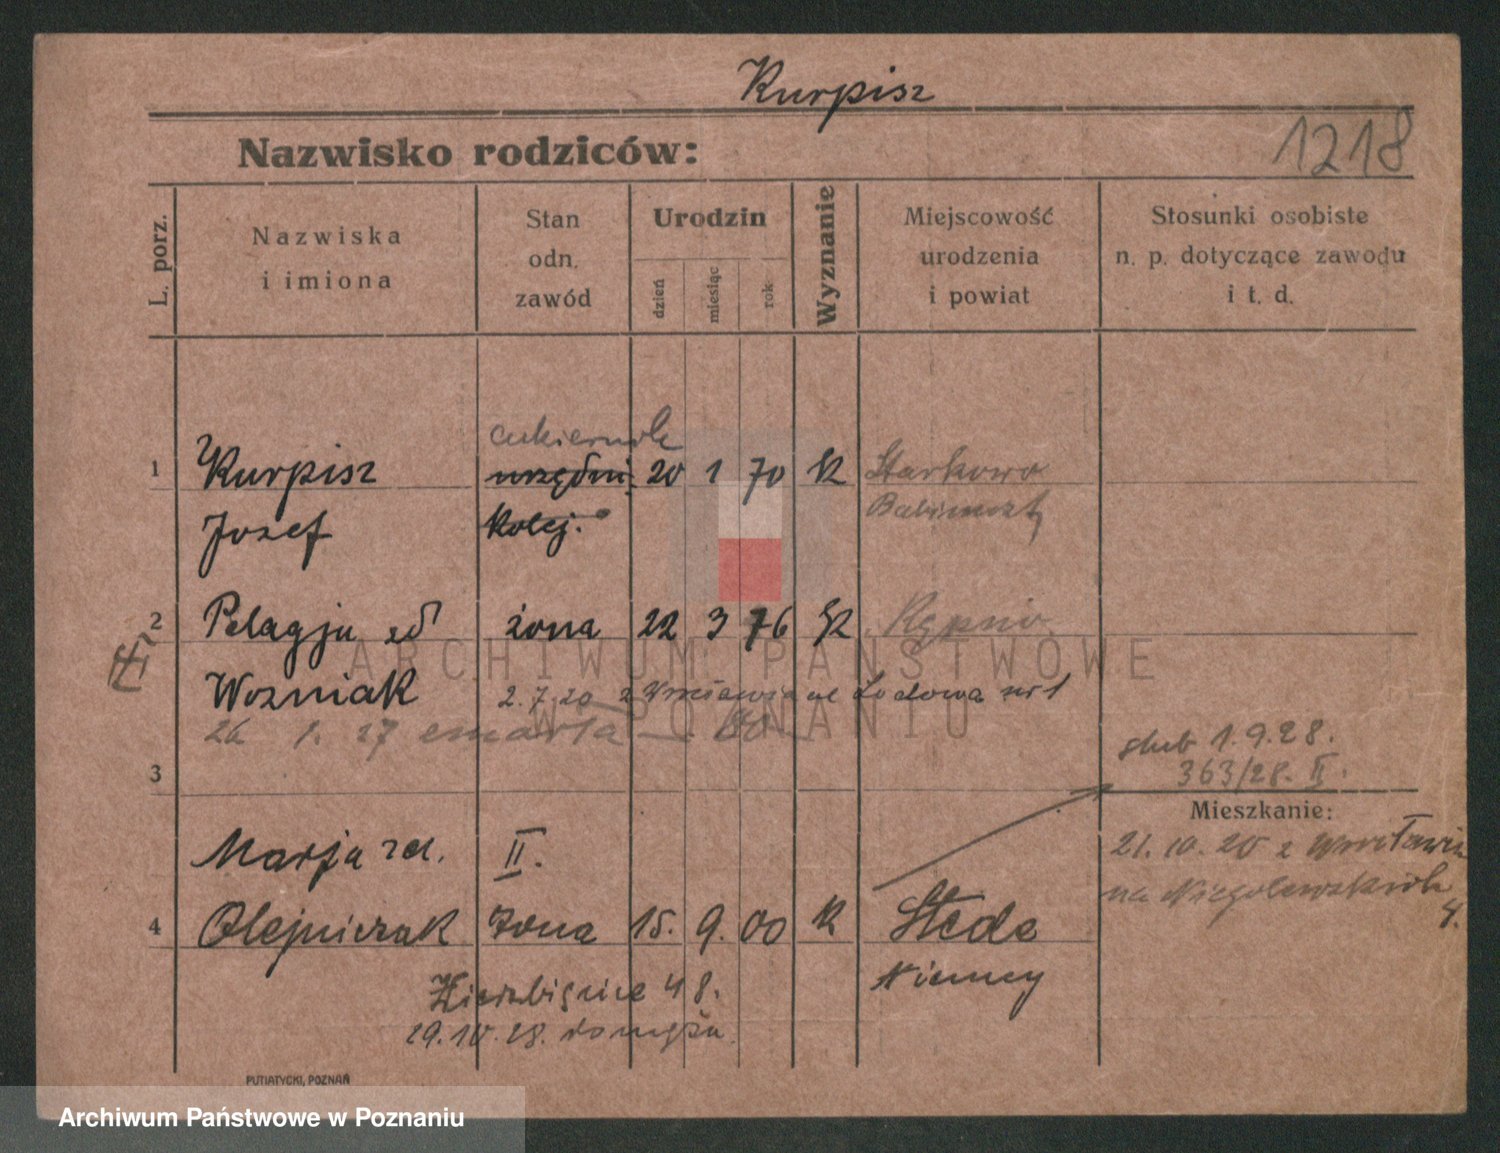 Kurpisz
Nazwisko rodziców:
1218
L. porz.
Nazwiska
i imiona
Stan
odn.
zawód
Urodzin
dzień
miesiąc
rok
Wyznanie
Miejscowość
urodzenia
i powiat
Stosunki osobiste
n. p. dotyczące zawodu
i t. d.
cukiernik
1 Kurpisz urzędni. 20 1 70 k Starkowo
Józef kolej. Babimost
2 Pelagja żona 22 3 76 k Kępno
Wozniak 2.7.20 z Wrocławia ul Lodowa nr 1
26 1. 27 zmarła
ślub 1.9.28.
363/28. II.
3
Mieszkanie:
21.10.20 z Wrocławia
na Niegolewskich
4.
Marja zd. II.
4 Olejniczak żona 15. 9. 00 k Stede
Niemcy
48.
29.10.28. do męża
PUTIATYCKI, POZNAŃ
ARCHIWUM PAŃSTWOWE
W POZNANIU
Archiwum Państwowe w Poznaniu